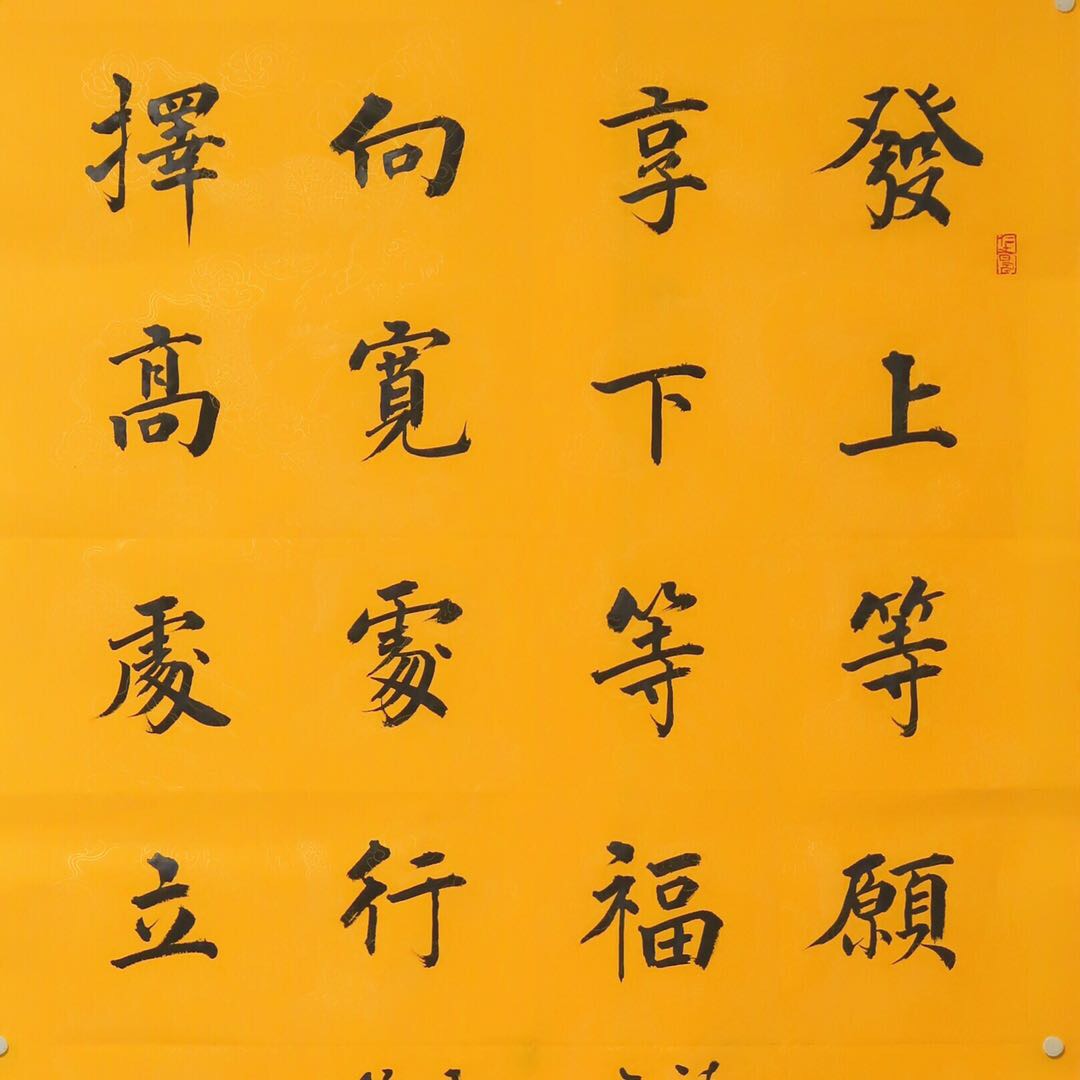 發上等願
享下等福
向寬處行
擇高處立